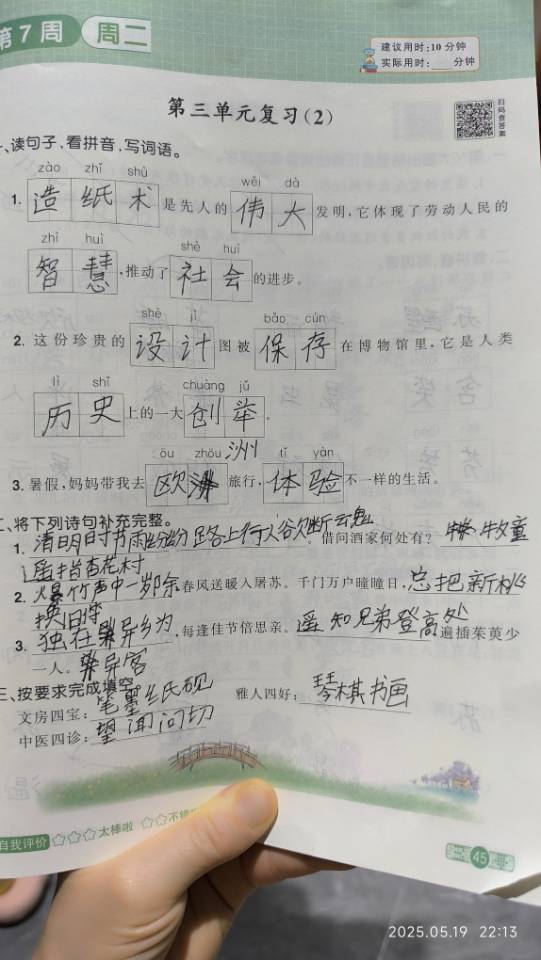 第7周 周二
建议用时:10分钟
实际用时: 分钟
第三单元复习(2)
扫码查答案
一、读句子,看拼音,写词语。
zào zhǐ shù wěi dà
1. 造纸术是先人的伟大发明,它体现了劳动人民的
zhì huì shè huì
智慧,推动了社会的进步。
shè jì bǎo cún
2. 这份珍贵的设计图被保存在博物馆里,它是人类
lì shǐ chuàng jǔ
历史上的一大创举。
ōu zhōu 洲 tǐ yàn
3. 暑假,妈妈带我去欧洲旅行,体验不一样的生活。
二、将下列诗句补充完整。
1. 清明时节雨纷纷 路上行人欲断魂。借问酒家何处有?牧童
遥指杏花村
2. 爆竹声中一岁除,春风送暖入屠苏。千门万户曈曈日,总把新桃
换旧符
3. 独在异乡为,每逢佳节倍思亲。遥知兄弟登高处遍插茱萸少
一人。异客
三、按要求完成填空。
文房四宝:笔墨纸砚 雅人四好:琴棋书画
中医四诊:望闻问切
自我评价 ☆☆☆太棒啦 ☆☆不错
45
2025.05.19 22:13